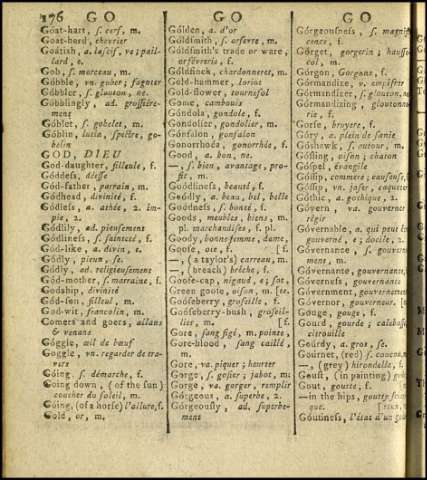 176 GO GO GO
Goat-hart, ſ. cerf, m.
Goat-herd, chevrier
Goatiſh, a. laſcif, ve; pail-
lard, e.
Gob, ſ. morceau, m.
Gobble, vn. gober; fagoter
Gobbler, ſ. glouton, ne.
Gobblingly, ad. groſſière-
ment
Goblet, ſ. gobelet, m.
Goblin, lutin, ſpectre, go-
belin
GOD, DIEU
God-daughter, filleule, f.
Goddeſs, déeſſe
God-father, parrain, m.
Godhead, divinité, f.
Godleſs, a. athée, 2. im-
pie, 2.
Godlily, ad. pieuſement
Godlineſs, ſ. ſainteté, f.
God-like, a. divin, e.
Godly, pieux, ſe.
Godly, ad. religieuſement
God-mother, ſ. marraine, f.
Godship, divinité
God-ſon, filleul, m.
God-wit, francolin, m.
Comers and goers, allans
& venans
Goggle, œil de bœuf
Goggle, vn. regarder de tra-
vers
Going, ſ. démarche, f.
Going down, (of the ſun)
coucher du ſoleil, m.
Going, (of a horſe) l'allure, f.
Gold, or, m.
Golden, a. d'or
Goldſmith, ſ. orfevre, m.
Goldſmith's trade or ware,
orfévrerie, f.
Goldfinch, chardonneret, m.
Gold-hammer, loriot
Gold-flower, tourneſol
Gome, cambouis
Gondola, gondole, f.
Gondolier, gondolier, m.
Gonfalon, gonfalon
Gonorrhoea, gonorrhée, f.
Good, a. bon, ne.
—, ſ. bien, avantage, pro-
fit, m.
Goodlineſs, beauté, f.
Goodly, a. beau, bel, belle
Goodneſs, ſ. bonté, f.
Goods, meubles, biens, m.
pl. marchandiſes, f. pl.
Goody, bonne femme, dame,
Gooſe, oie, f. [f.
—, (a taylor's) carreau, m.
—, (breach) brêche, f.
Gooſe-cap, nigaud, e; ſot,
Green gooſe, oiſon, m. [te.
Gooſeberry, groſeille, f.
Gooſeberry-bush, groſeil-
lier, m. [f.
Gore, ſang figé, m. pointe,
Gore-blood, ſang caillé,
m.
Gore, va. piquer; heurter
Gorge, ſ. gosier; jabot, m.
Gorge, va. gorger, remplir
Gorgeous, a. ſuperbe, 2.
Gorgeouſly, ad. ſuperbe-
ment
Gorgeouſneſs, ſ. magnifi-
cence, f.
Gorget, gorgerin; hauſſe-
col, m.
Gorgon, Gorgone, f.
Gormandize, v. empiffrer
Gormandizer, ſ. glouton, ne
Gormandizing, gloutonne-
rie, f.
Gorſe, bruyere, f.
Gory, a. plein de ſanie
Goshawk, ſ. autour, m.
Goſling, oiſon; chaton
Goſpel, évangile
Goſſip, commere; cauſeuſe, f.
Goſſip, vn. jaſer, coqueter
Gothic, a. gothique, 2.
Govern, va. gouverner
régir
Governable, a. qui peut être
gouverné, e; docile, 2.
Governance, ſ. gouverne-
ment, m.
Governante, gouvernante,
Governeſs, gouvernante
Government, gouvernement
Governor, gouverneur, [m.
Gouge, gouge, f.
Gourd, gourde; calebaſſe,
citrouille
Gourdy, a. gros, ſe.
Gournet, (red) ſ. coucou, m.
—, (grey) hirondelle, f.
Gouſt, (in painting) goût
Gout, goutte, f.
—in the hips, goutte
que.
Goutineſs, l'état d'un